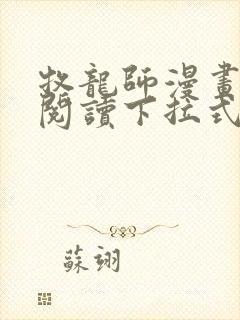 牧龍師漫畫
閱讀下拉式
蘇翊